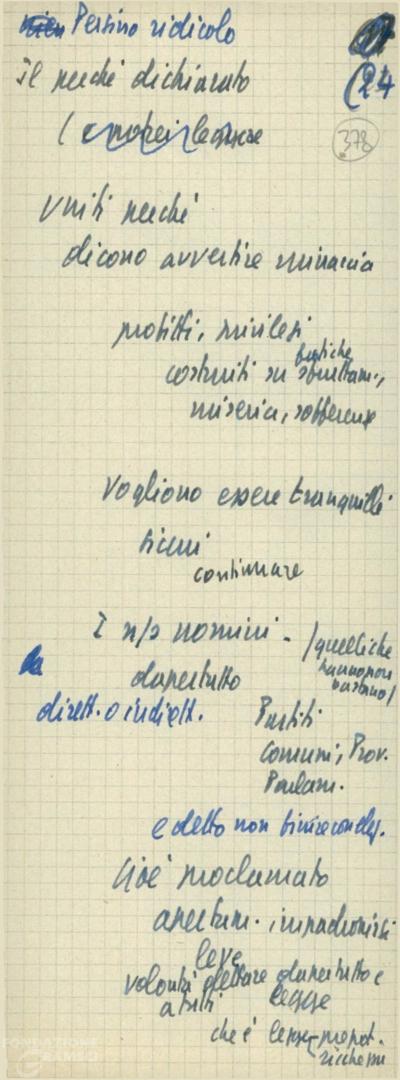 Persino ridicolo
24
Il perché dichiarato
378
( e potrei leggere
Uniti perché
dicono avvertire minaccia
profitti, privilegi
fatiche
costruiti su sfruttam.,
miseria, sofferenze
Vogliono essere tranquilli
sicuri
continuare
I n/s uomini - /quelli che
hanno non
bastano/
dapertutto
dirett. o indirett.
Partiti
Comuni, Prov.
Parlam.
e detto non
Cioè proclamato
apertam. impadronirsi
leve
volontà dettare dapertutto e
a tutti legge
che è legge prepot.
ricchezza
FONDAZIONE
GRAMSCI